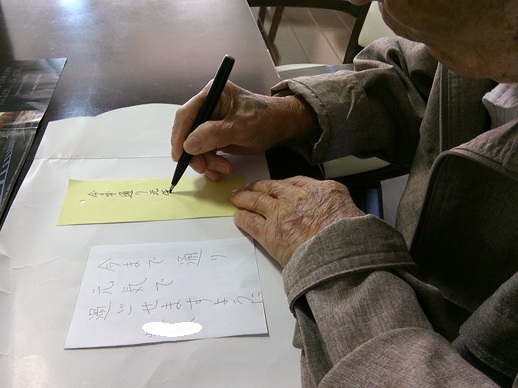 今まで通り元
今まで通り
元気で
過ごせますように